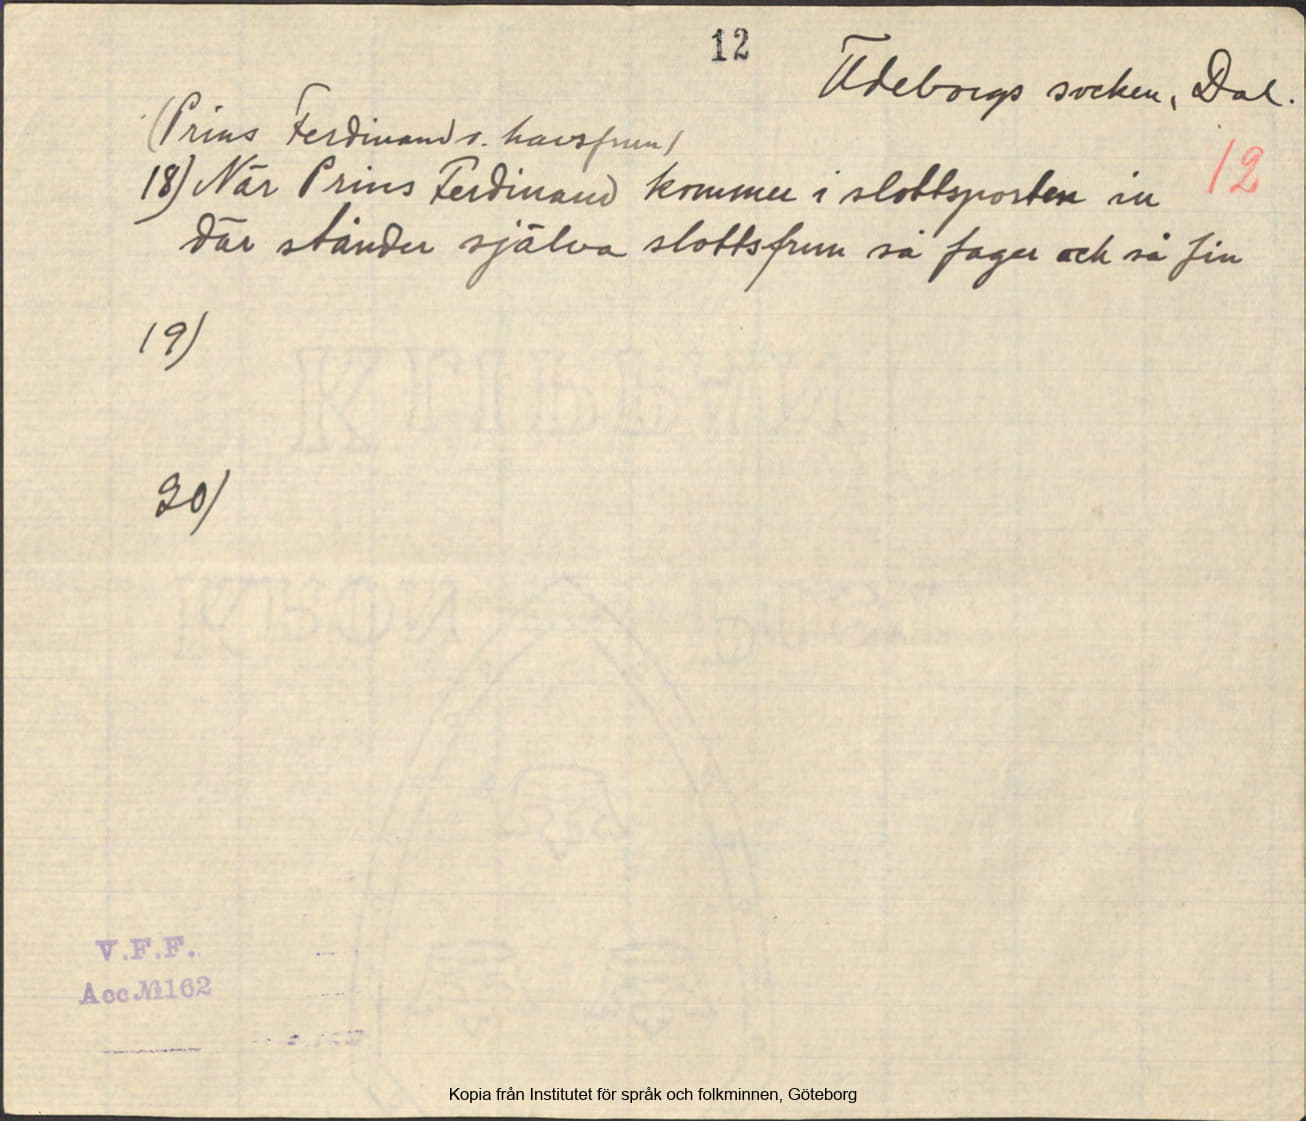 12
Ödeborgs socken, Dal.
(Prins Ferdinand o. havsfrun)
12
18) När Prins Ferdinand kommer i slottsporten in
där ståndar själva slottsfrun så fager och så fin
19)
20)
V.F.F.
Acc № 162
Kopia från Institutet för språk och folkminnen, Göteborg